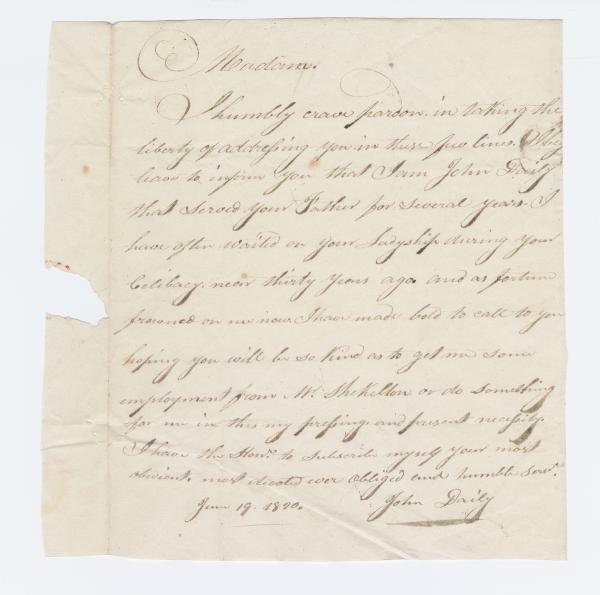 Madam.
I humbly crave pardon in taking the
liberty of addressing you in these few lines. I beg
leave to inform you that I am John Daily
that served your Father for several years. I
have often waited on your Ladyship during your
Celibacy. near thirty years ago. and as fortune
frowned on me now I have made bold to call to you
hoping you will be so kind as to get me some
employment from Mr. Shekelton or do something
for me in this my pressing and present necessity.
I have the Honr. to subscribe myself your most
obedient. most devoted ever obliged and humble Servt.
June 19. 1820. John Daily